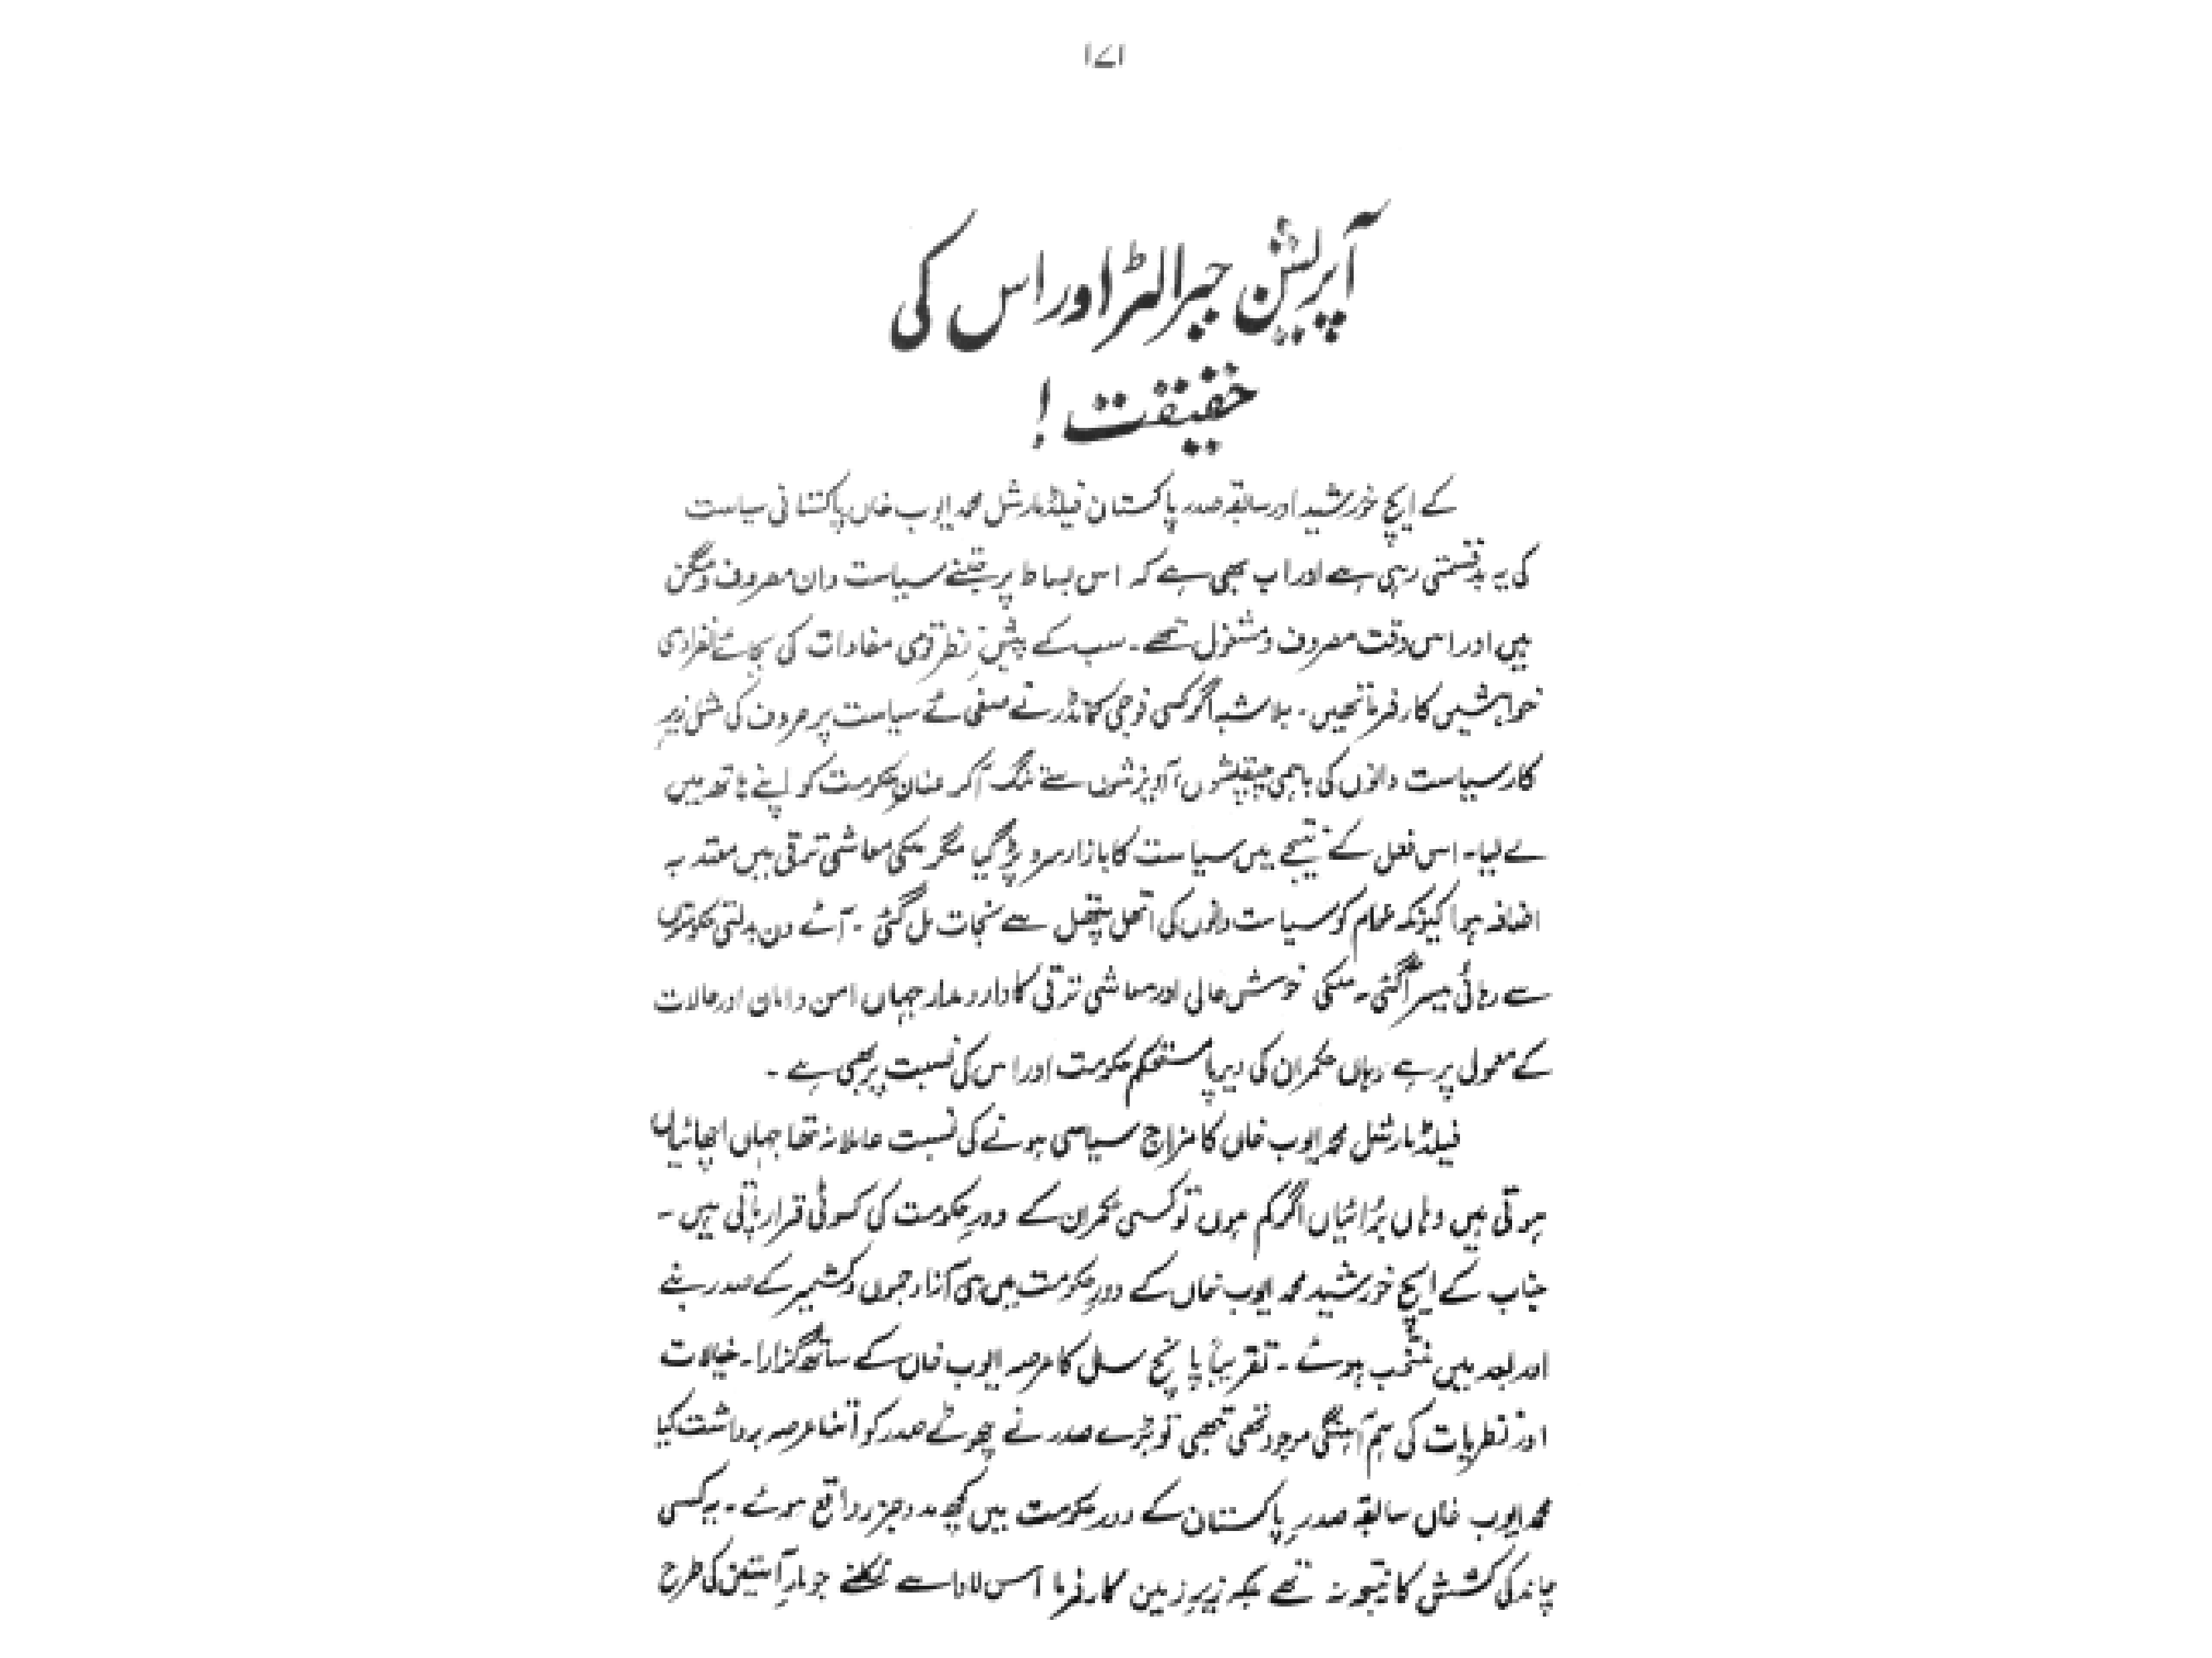 ۱۷۱
آپریشن جبرالٹر اور اس کی
حقیقت !
کے ایچ خورشید اور سابقہ صدر پاکستان فیلڈ مارشل محمد ایوب خاں پاکستانی سیاست
کی یہ بدقسمتی رہی ہے اور اب بھی ہے کہ اس بساط پر جتنے سیاست دان مصروف و مگن
ہیں اور اس وقت مصروف و مشغول تھے۔ سب کے پیشِ نظر قومی مفادات کی بجائے انفرادی
خواہشیں کارفرما تھیں۔ بلاشبہ اگر کسی فوجی کمانڈر نے صفحۂ سیاست پر حروف کی مثل زیر
کار سیاست دانوں کی باہمی چپقلشوں، آویزشوں سے تنگ آکر عنانِ حکومت کو اپنے ہاتھ میں
لے لیا۔ اس فعل کے نتیجے میں سیاست کا بازار سرد پڑ گیا مگر ملکی معاشی ترقی میں معتد بہ
اضافہ ہوا کیونکہ عوام کو سیاست دانوں کی اتھل پتھل سے نجات مل گئی۔ آئے دن بدلتی حکومتوں
سے رہائی میسر آگئی۔ ملکی خوش حالی اور معاشی ترقی کا دارومدار جہاں امن و امان اور حالات
کے معمول پر ہے وہاں حکمران کی دیرپا مستحکم حکومت اور اس کی نسبت پر بھی ہے۔
فیلڈ مارشل محمد ایوب خاں کا مزاج سیاسی ہونے کی نسبت عاملانہ تھا جہاں اچھائیاں
ہوتی ہیں وہاں بُرائیاں اگر کم ہوں تو کسی حکمران کے دورِ حکومت کی کسوٹی قرار پاتی ہیں۔
جناب کے ایچ خورشید محمد ایوب خاں کے دورِ حکومت میں ہی آزاد جموں و کشمیر کے صدر بنے
اور بعد میں منتخب ہوئے۔ تقریباً پانچ سال کا عرصہ ایوب خاں کے ساتھ گزارا۔ خیالات
اور نظریات کی ہم آہنگی موجود تھی تبھی تو بڑے صدر نے چھوٹے صدر کو اتنا عرصہ برداشت کیا
محمد ایوب خاں سابقہ صدرِ پاکستان کے دورِ حکومت میں کچھ مد و جزر واقع ہوئے۔ یہ کسی
چاند کی کشش کا نتیجہ نہ تھے بلکہ زیرِ زمین کارفرما اس لاوا سے نکلنے جو مارِ آستین کی طرح